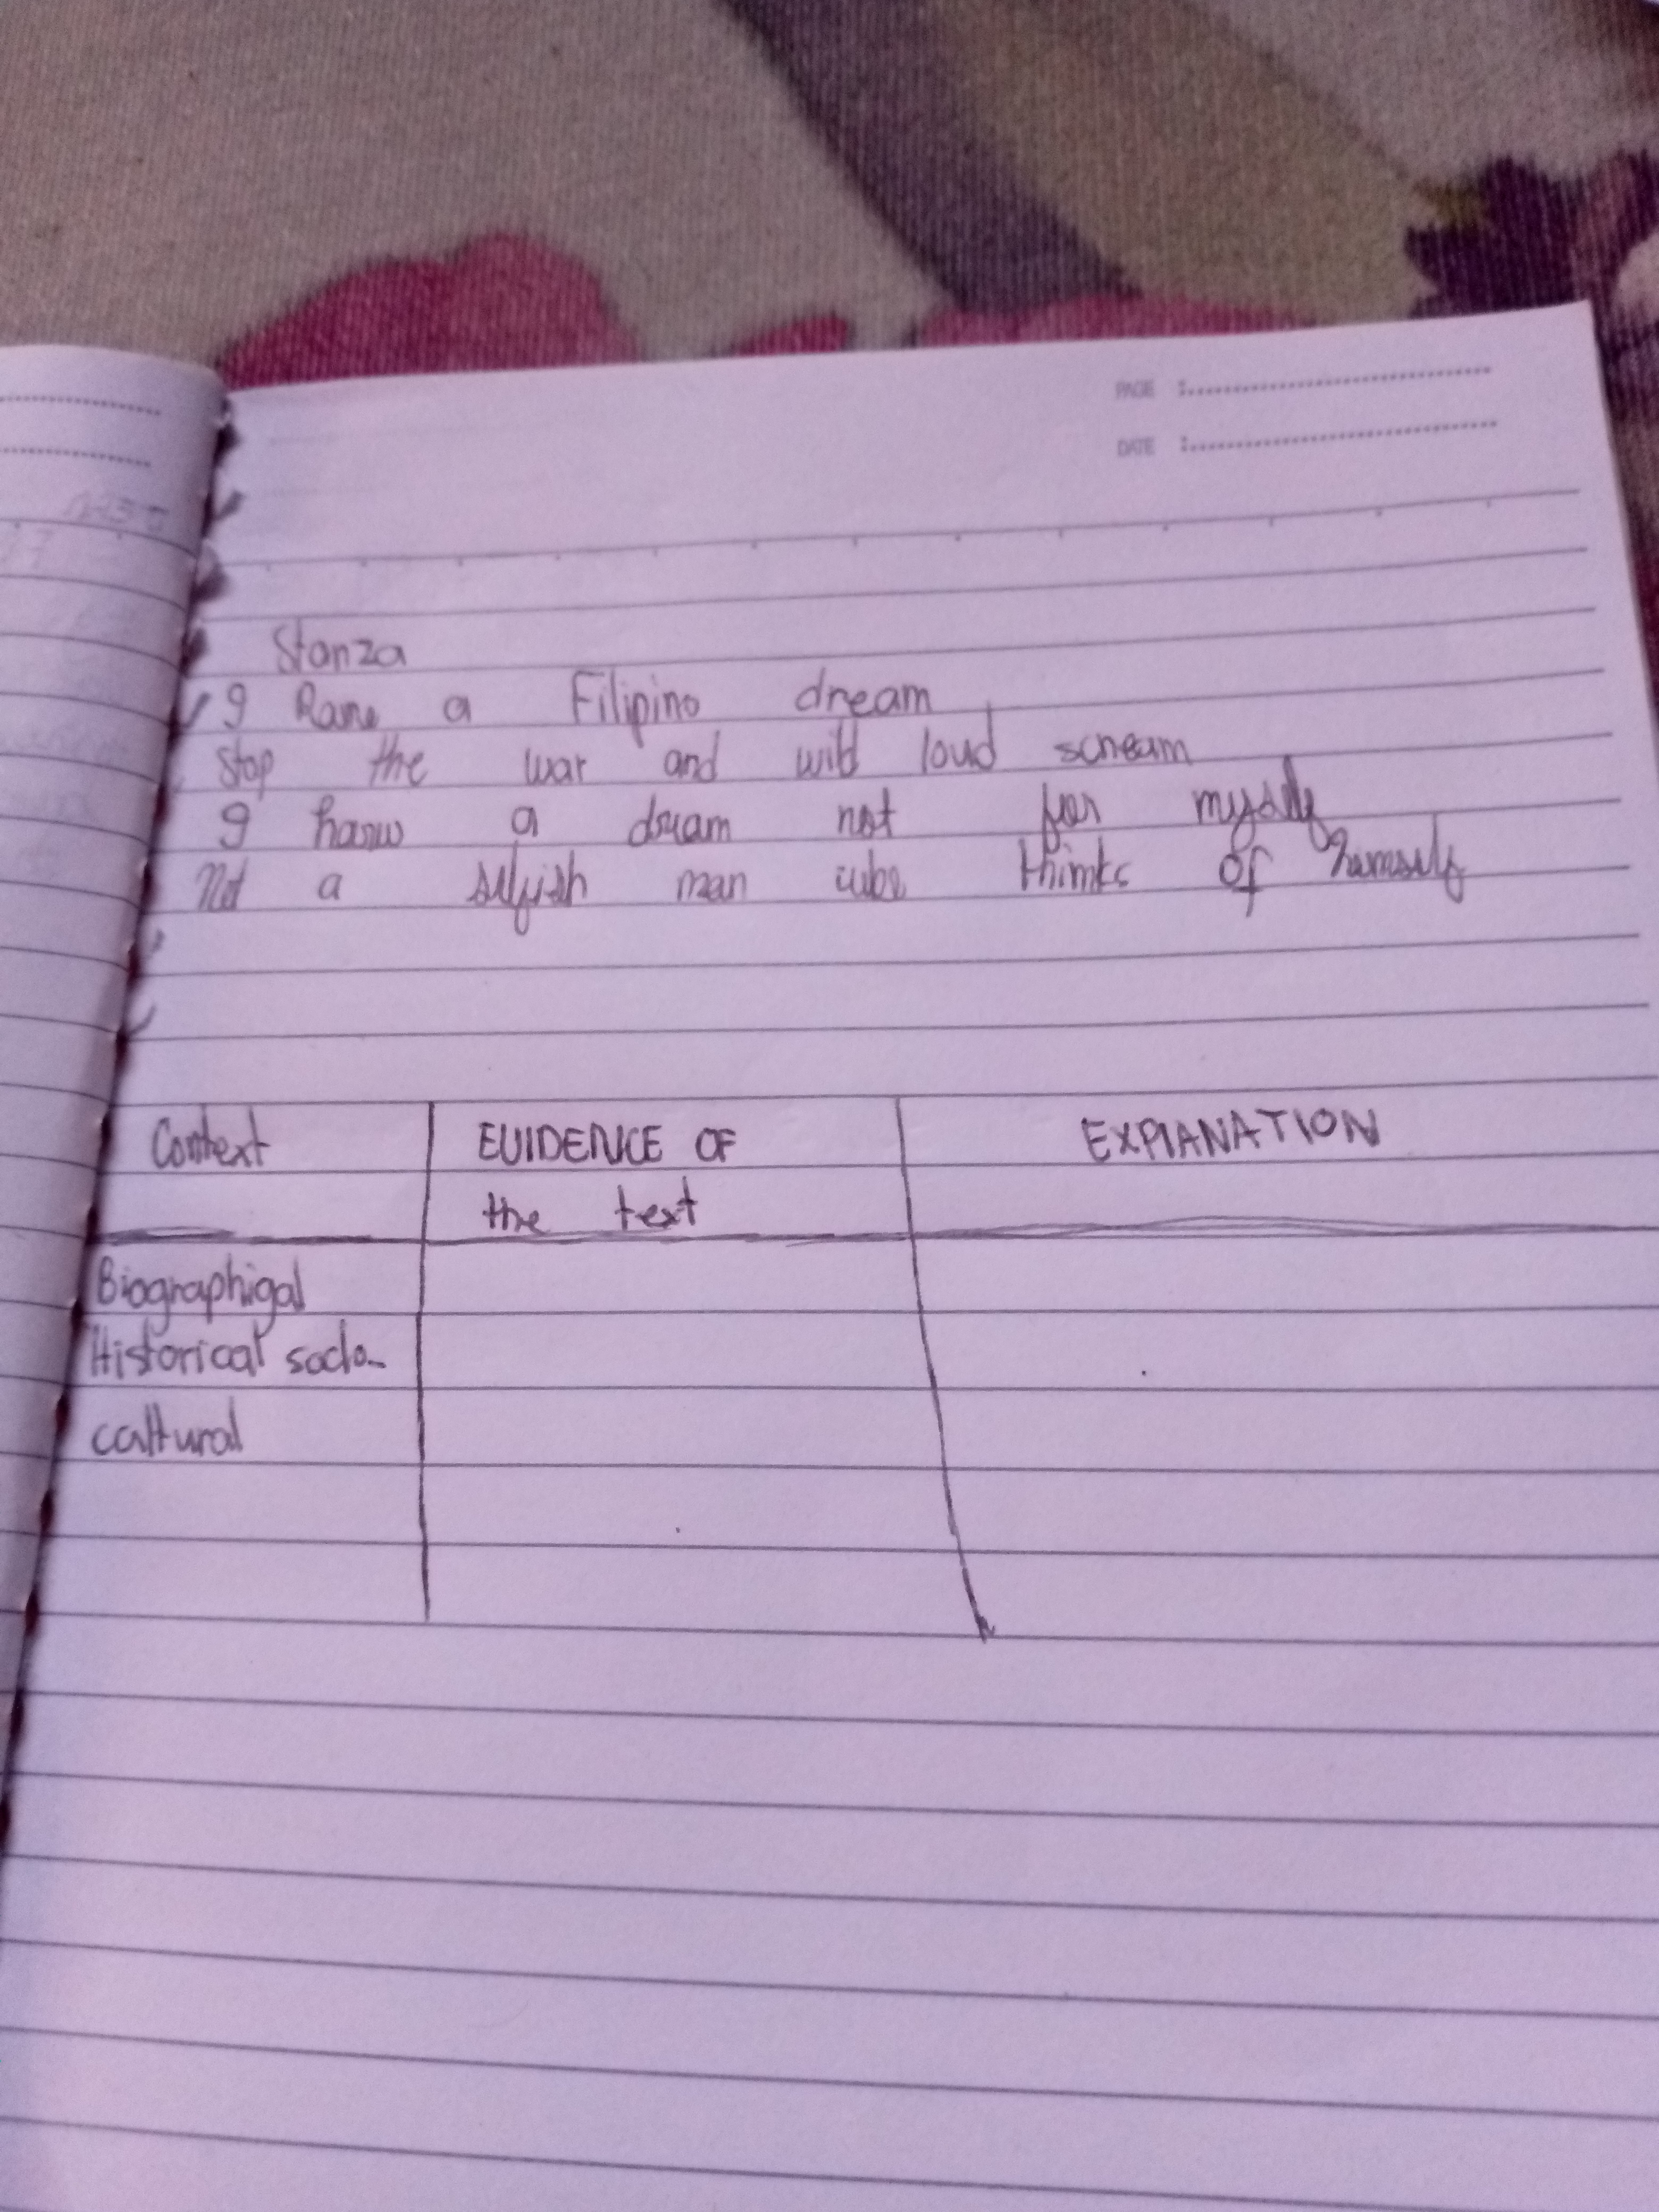 PAGE :
DATE :
Stanza
I Have a Filipino dream
Stop the war and wild loud scream
I have a dream not for myself
Not a selfish man who thinks of himself
Context EVIDENCE OF EXPLANATION
the text
Biographigal
Historical socio-
caltural